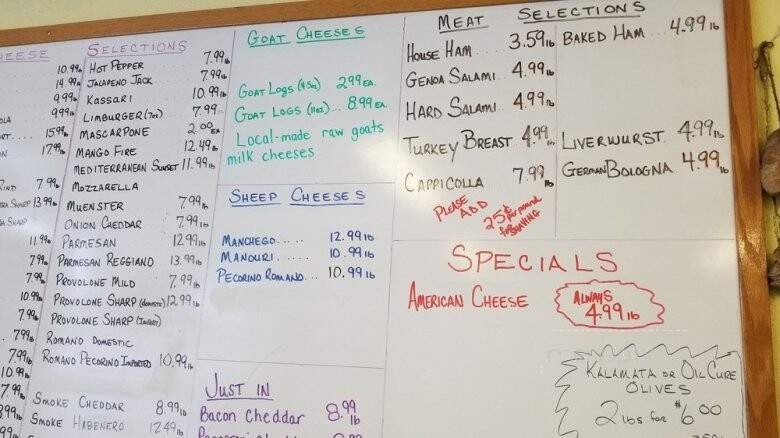 SELECTIONS
HOT PEPPER 7.99 lb
JALAPENO JACK 7.99 lb
KASSARI 10.99 lb
LIMBURGER (7oz) 7.99
MASCARPONE 2.00 EA
MANGO FIRE 12.49 lb
MEDITERRANEAN SUNSET 11.99 lb
MOZZARELLA
MUENSTER 7.99 lb
ONION CHEDDAR 7.99 lb
PARMESAN 12.99 lb
PARMESAN REGGIANO 13.99 lb
PROVOLONE MILD 7.99 lb
PROVOLONE SHARP (domestic) 12.99 lb
PROVOLONE SHARP (Imported)
ROMANO DOMESTIC
ROMANO PECORINO IMPORTED 10.99 lb
SMOKE CHEDDAR 8.99 lb
SMOKE HABENERO 12.49 lb
10.99 lb
14.99 lb
9.99 lb
9.99 lb
15.99 lb
17.99 lb
7.99 lb
13.99 lb
11.99 lb
7.99 lb
7.99 lb
10.99 lb
7.99 lb
7.99 lb
7.99 lb
10.99 lb
7.99 lb
GOAT CHEESES
GOAT LOGS (4 5oz) 2.99 EA.
GOAT LOGS (11oz) ... 8.99 EA.
Local-made raw goats
milk cheeses
SHEEP CHEESES
MANCHEGO..... 12.99 lb
MANOURI..... 10.99 lb
PECORINO ROMANO... 10.99 lb
JUST IN
Bacon Cheddar 8.99 lb
MEAT SELECTIONS
HOUSE HAM ... 3.59 lb
GENOA SALAMI . 4.99 lb
HARD SALAMI . 4.99 lb
TURKEY BREAST 4.99 lb
CAPPICOLLA 7.99 lb
PLEASE ADD 25¢ per pound for SHAVING
BAKED HAM ... 4.99 lb
LIVERWURST 4.99 lb
GERMAN BOLOGNA 4.99 lb
SPECIALS
AMERICAN CHEESE ALWAYS 4.99 lb
KALAMATA OR OIL CURE
OLIVES
2 lbs for $6.00